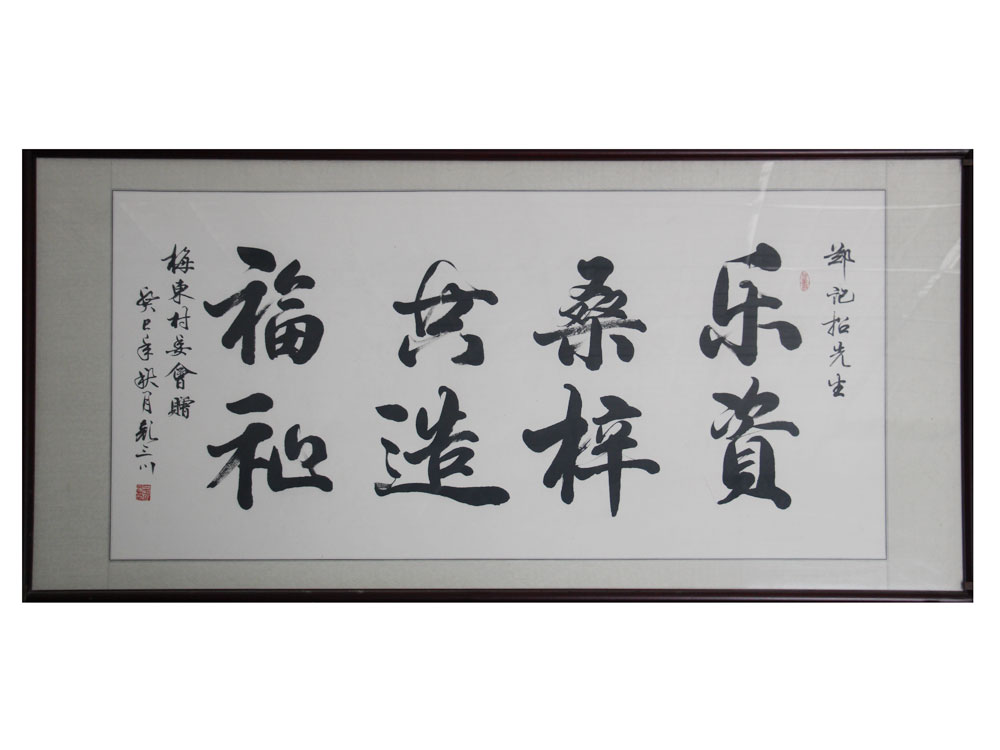 郑记招先生
乐资
桑梓
共造
福祉
梅東村委會贈
癸巳年秋月